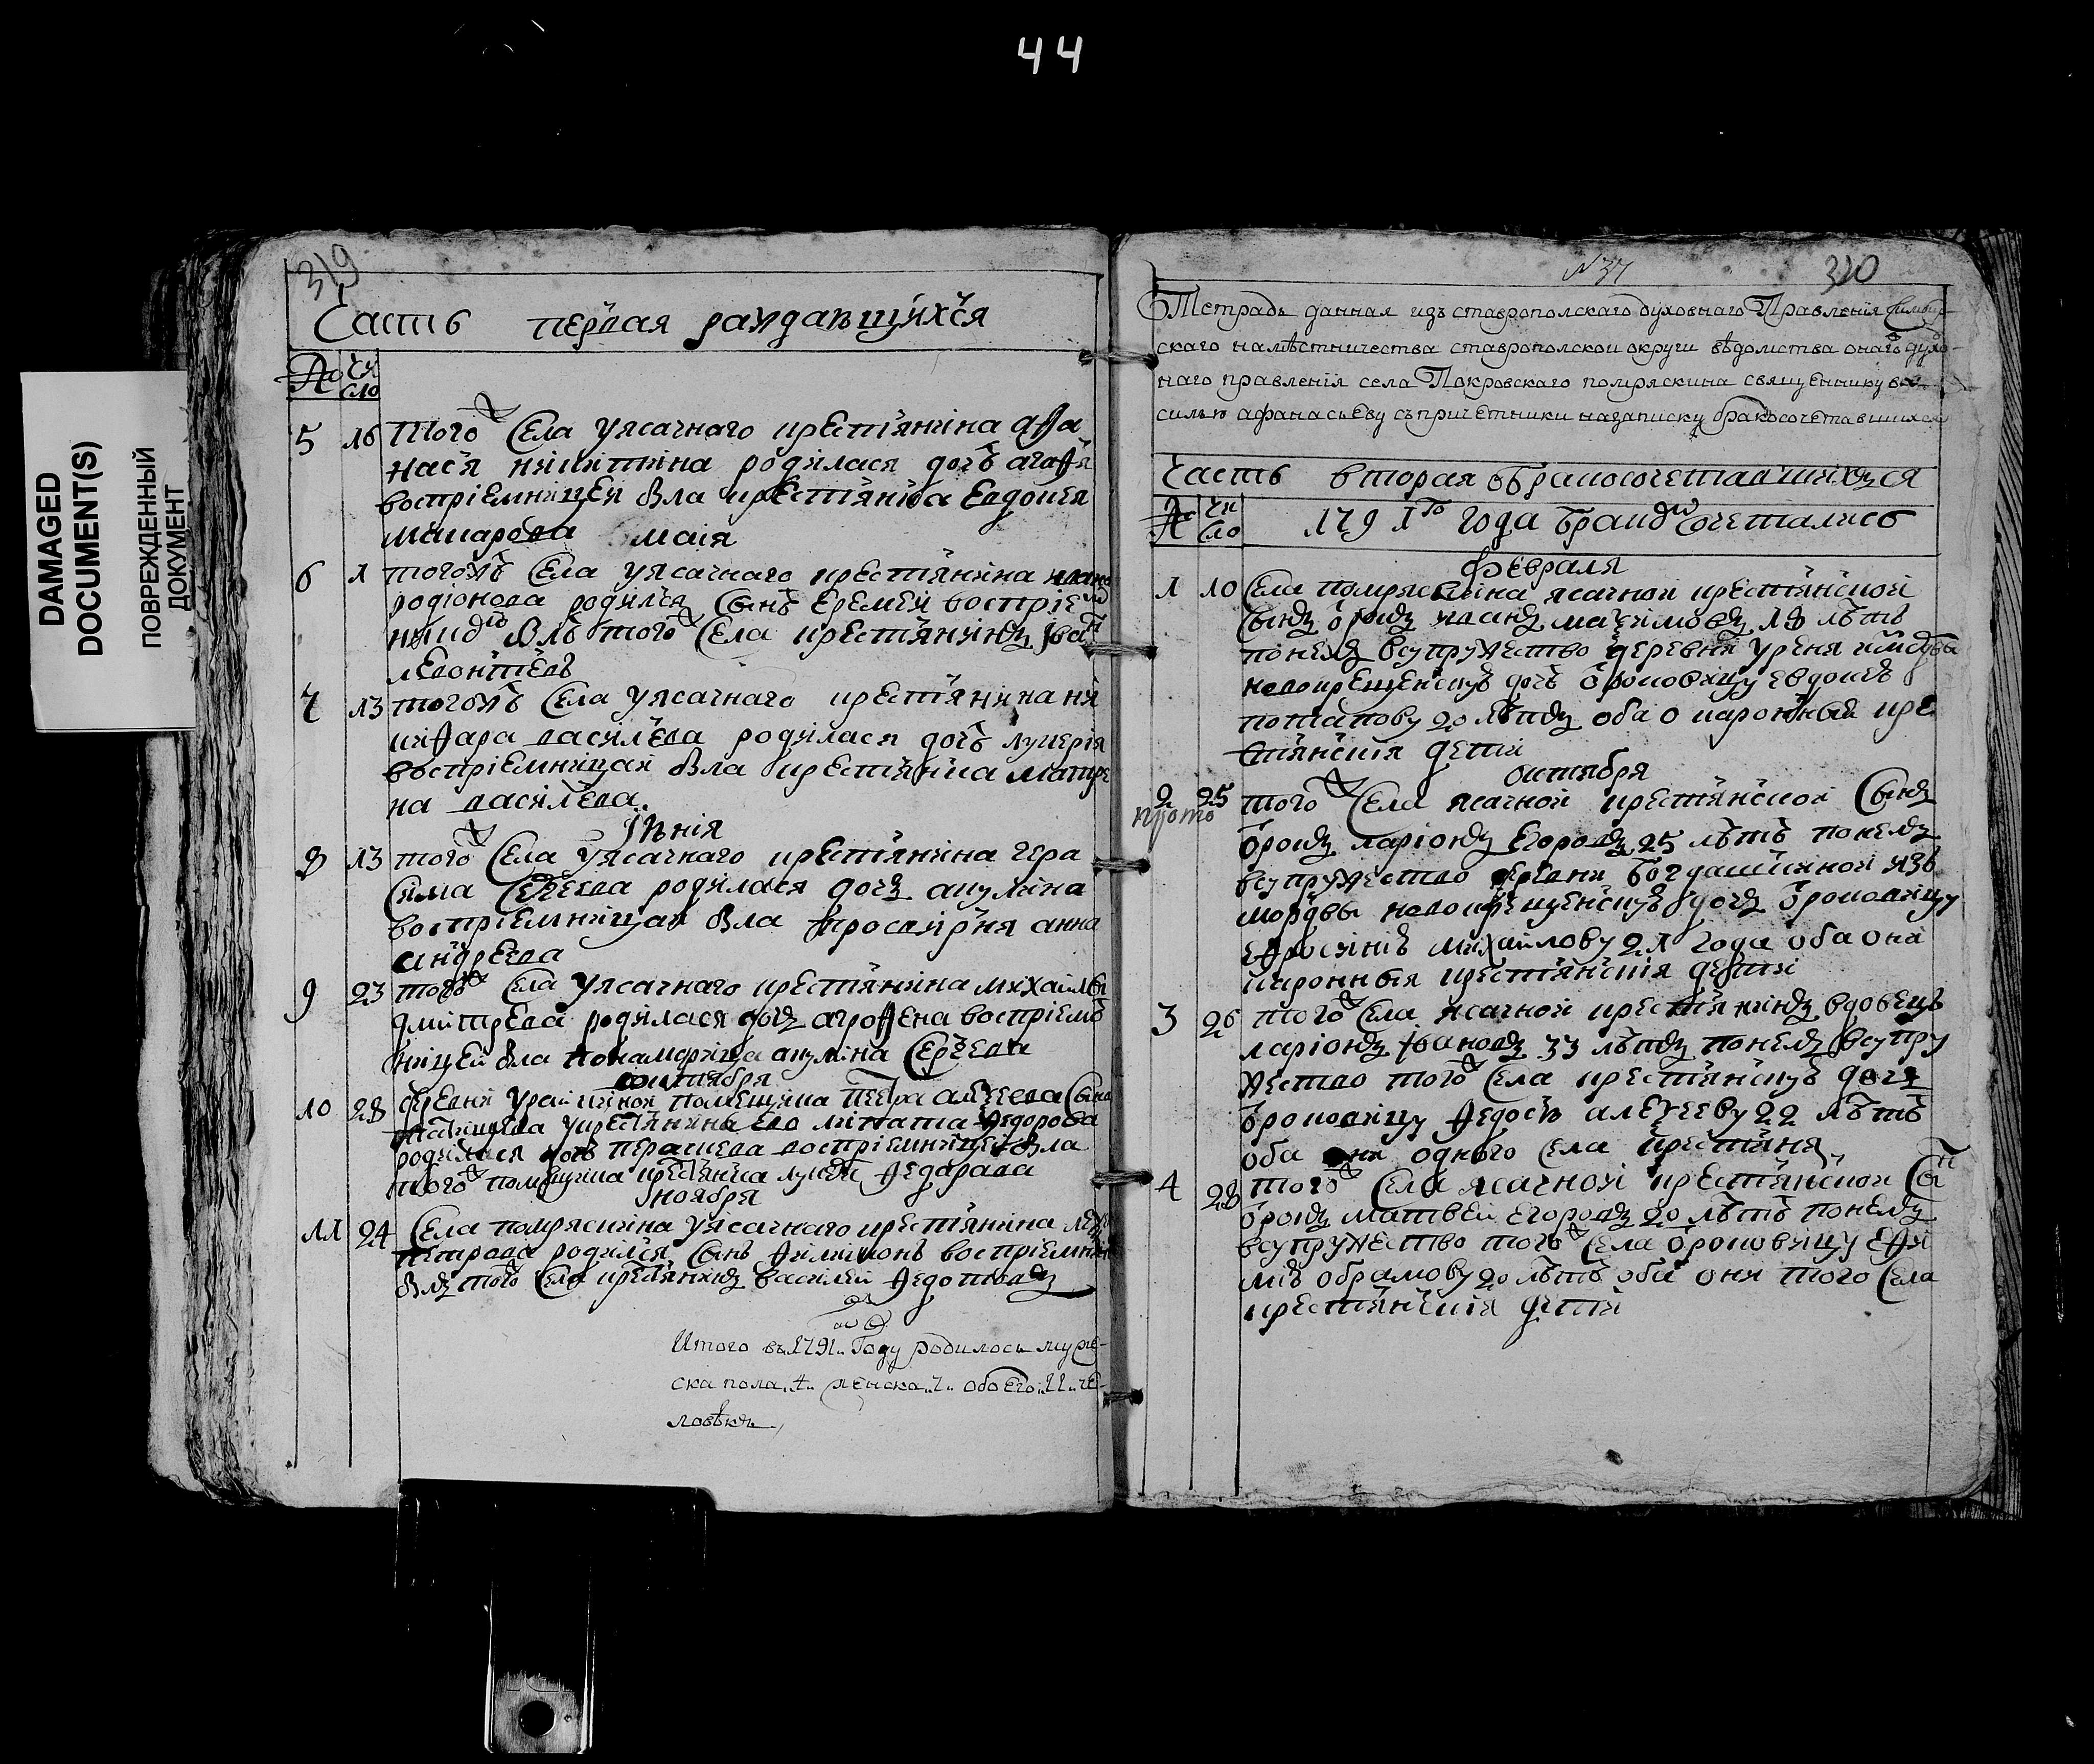 44
DAMAGED
DOCUMENT(S)
ПОВРЕЖДЕННЫЙ
ДОКУМЕНТ
319
Часть первая раждающихся
№ Чи
сло
5 16 тогож Села уясачнаго крестьянина афа
насья никитина родилась дочь агафя
восприемницей была крестьянка Евдокея
макарова маия
6 1 тогожъ Села уясачнаго крестьянина
родионова родился Сынъ Еремей восприем
никомъ былъ тогож Села крестьянинъ Иван
леонтиевъ
7 13 тогожъ Села уясачнаго крестьянина ни
кифара василева родилася дочь лукерия
восприемницаи была крестьянка матре
на василева.
Июния
8 13 тогож Села уясачнаго крестьянина гера
сима Сергеева родилася дочь акулина
восприемницаи была просвирня анна
андреева
9 23 тогож Села уясачнаго крестьянина михаилы
дмитрева родилася дочь агрофена восприем
ницей была понамарица акулина Сергеева
октября
10 28 деревни помещика Петра алексеева Сына
укрестьянина ево Федорова
родилася дочь восприемницей была
тогож помещика крестьянка Федарава
ноября
11 24 Села помряскина уясачнаго крестьянина
петрова родился Сынъ Филимонъ восприемник
былъ тогож Села крестьянинъ василей Федотовъ
Итого въ 1791 Году родилось муже-
ска пола 4 женска 7 обоего 11 че-
ловѣкъ
№ 37 320
Тетрадь данная изъ ставрополскаго духовнаго Правления Симбир-
скаго намѣстничества ставрополской округи вѣдомства онаго духо-
наго правления села Покровскаго помряскина священнику ва-
силью афанасьеву съ причетники на записку бракосочетавшихся
Часть вторая о бракосочетавшихъся
№ Чи
сло 1791го года бракомъ Сочетались
февраля
1 10 Села помряскина ясачной крестьянской
Сынъ отрокъ иванъ максимовъ 18 лѣтъ
понелъ всупружество деревни уреня
новокрещенскую дочь отроковицу евдокею
потапову 20 лѣтъ оба
крестьянския дети
октября
2 25 тогож Села ясачной крестьянской Сынъ
отрокъ ларионъ Егоровъ 25 лѣтъ понелъ
всупружество деревни богдашкиной изъ
мордвы новокрещенскую дочь отроковицу
ефросинию михаилову 21 года оба они
крестьянския дети
3 26 тогож Села ясачной крестьянинъ вдовецъ
ларионъ Ивановъ 33 лѣтъ понелъ всупру
жество тогож Села крестьянскую дочь
отроковицу Федосью алексееву 22 лѣтъ
оба они одного Села крестьяня
4 28 тогож Села ясачной крестьянской Сынъ
отрокъ матвей Егоровъ 20 лѣтъ понелъ
всупружество тогож Села отроковицу Ефи
мию обрамову 20 лѣтъ оба они того Села
крестьянския дети